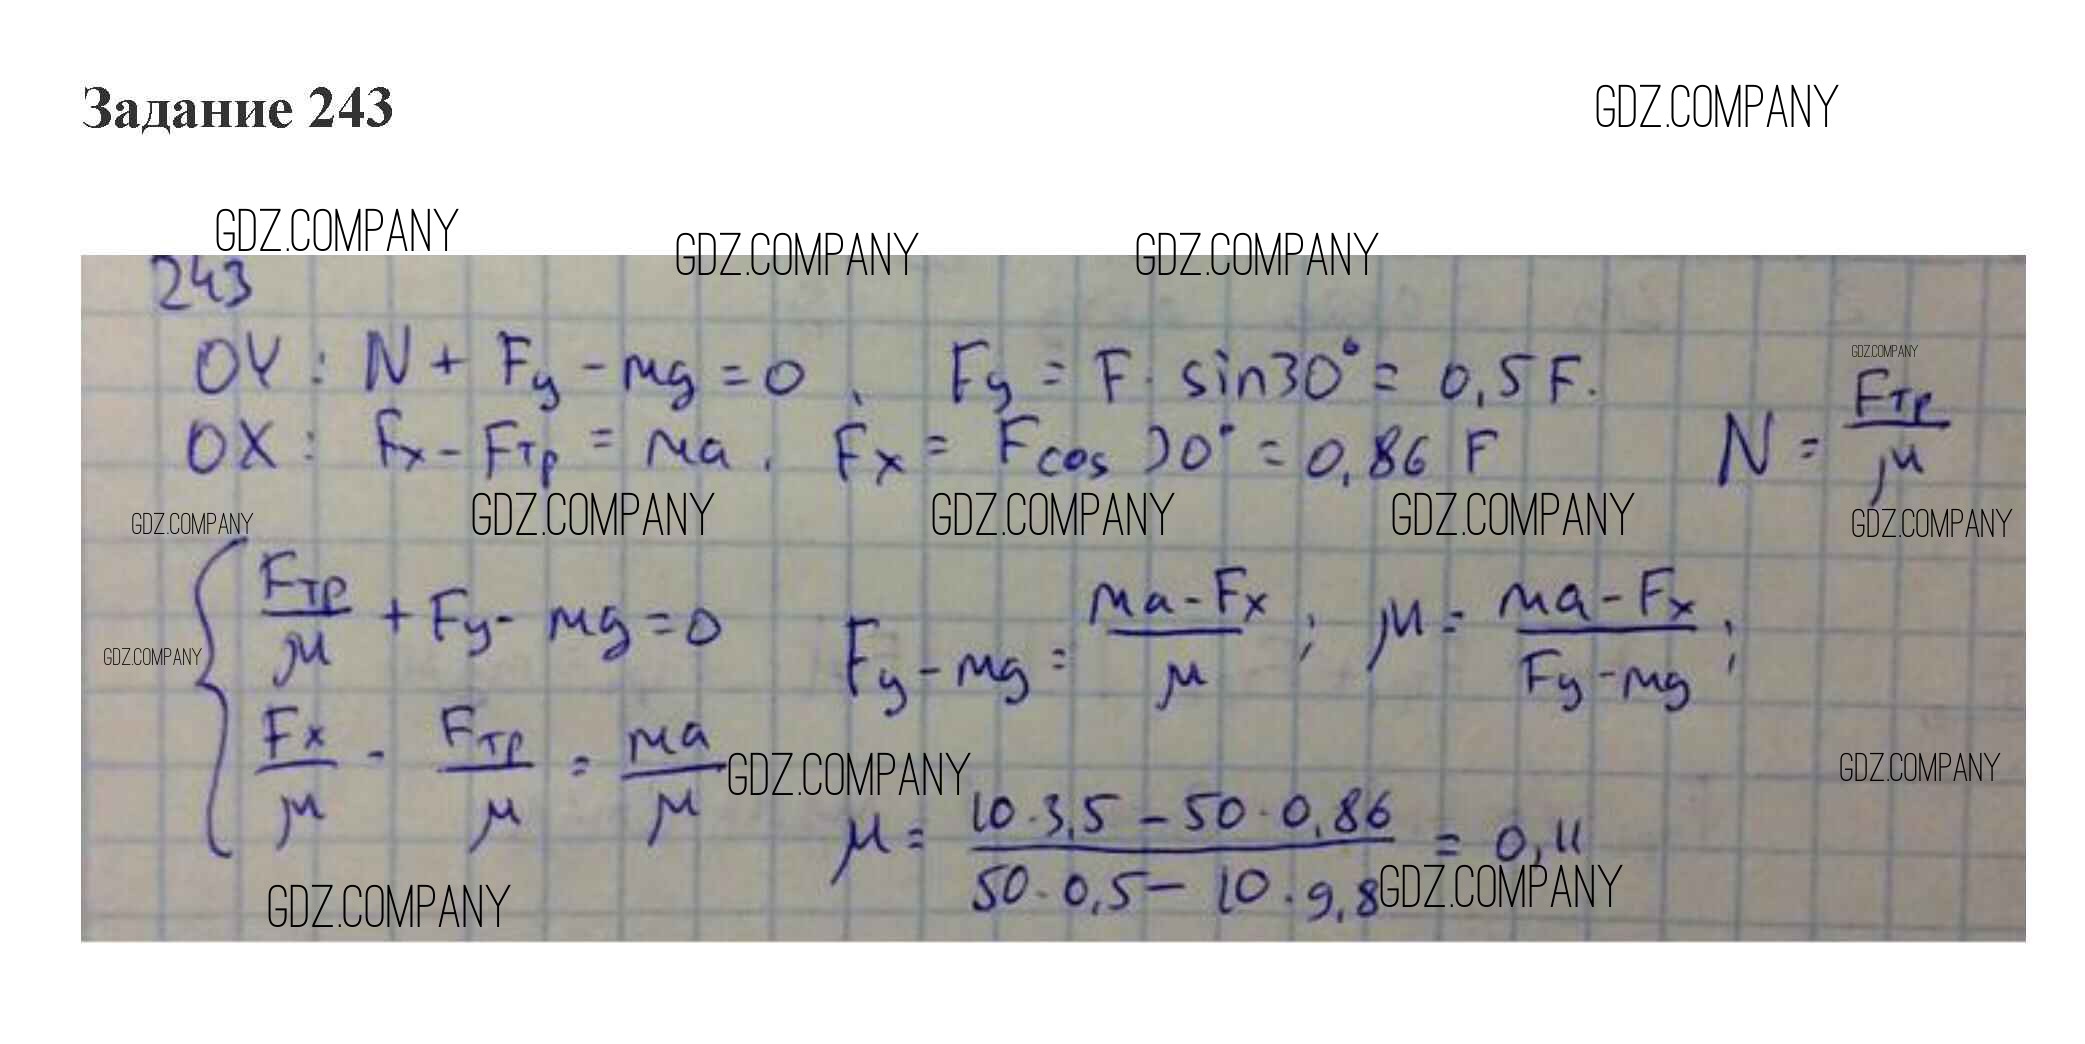 Задание 243
GDZ.COMPANY
GDZ.COMPANY
GDZ.COMPANY
GDZ.COMPANY
243
OY : N + Fy - mg = 0 , Fy = F · sin30° = 0,5 F.
GDZ.COMPANY
OX : Fx - Fтр = ma , Fx = F cos 30° = 0,86 F
N = Fтр / μ
GDZ.COMPANY
GDZ.COMPANY
GDZ.COMPANY
GDZ.COMPANY
GDZ.COMPANY
Fтр / μ + Fy - mg = 0
Fy - mg = (ma - Fx) / μ ; μ = (ma - Fx) / (Fy - mg) ;
GDZ.COMPANY
Fx / μ - Fтр / μ = ma / μ
GDZ.COMPANY
GDZ.COMPANY
μ = (10 · 3,5 - 50 · 0,86) / (50 · 0,5 - 10 · 9,8) = 0,11
GDZ.COMPANY
GDZ.COMPANY